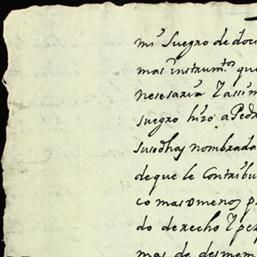 mi Suegro de doci
mas instrum.tos que
nesesaria Y assim
suegro hizo a Pedr
Susodhas nombrada
de que le Contribu
co mas o menos, p
do derecho Y pe
mas de desmem